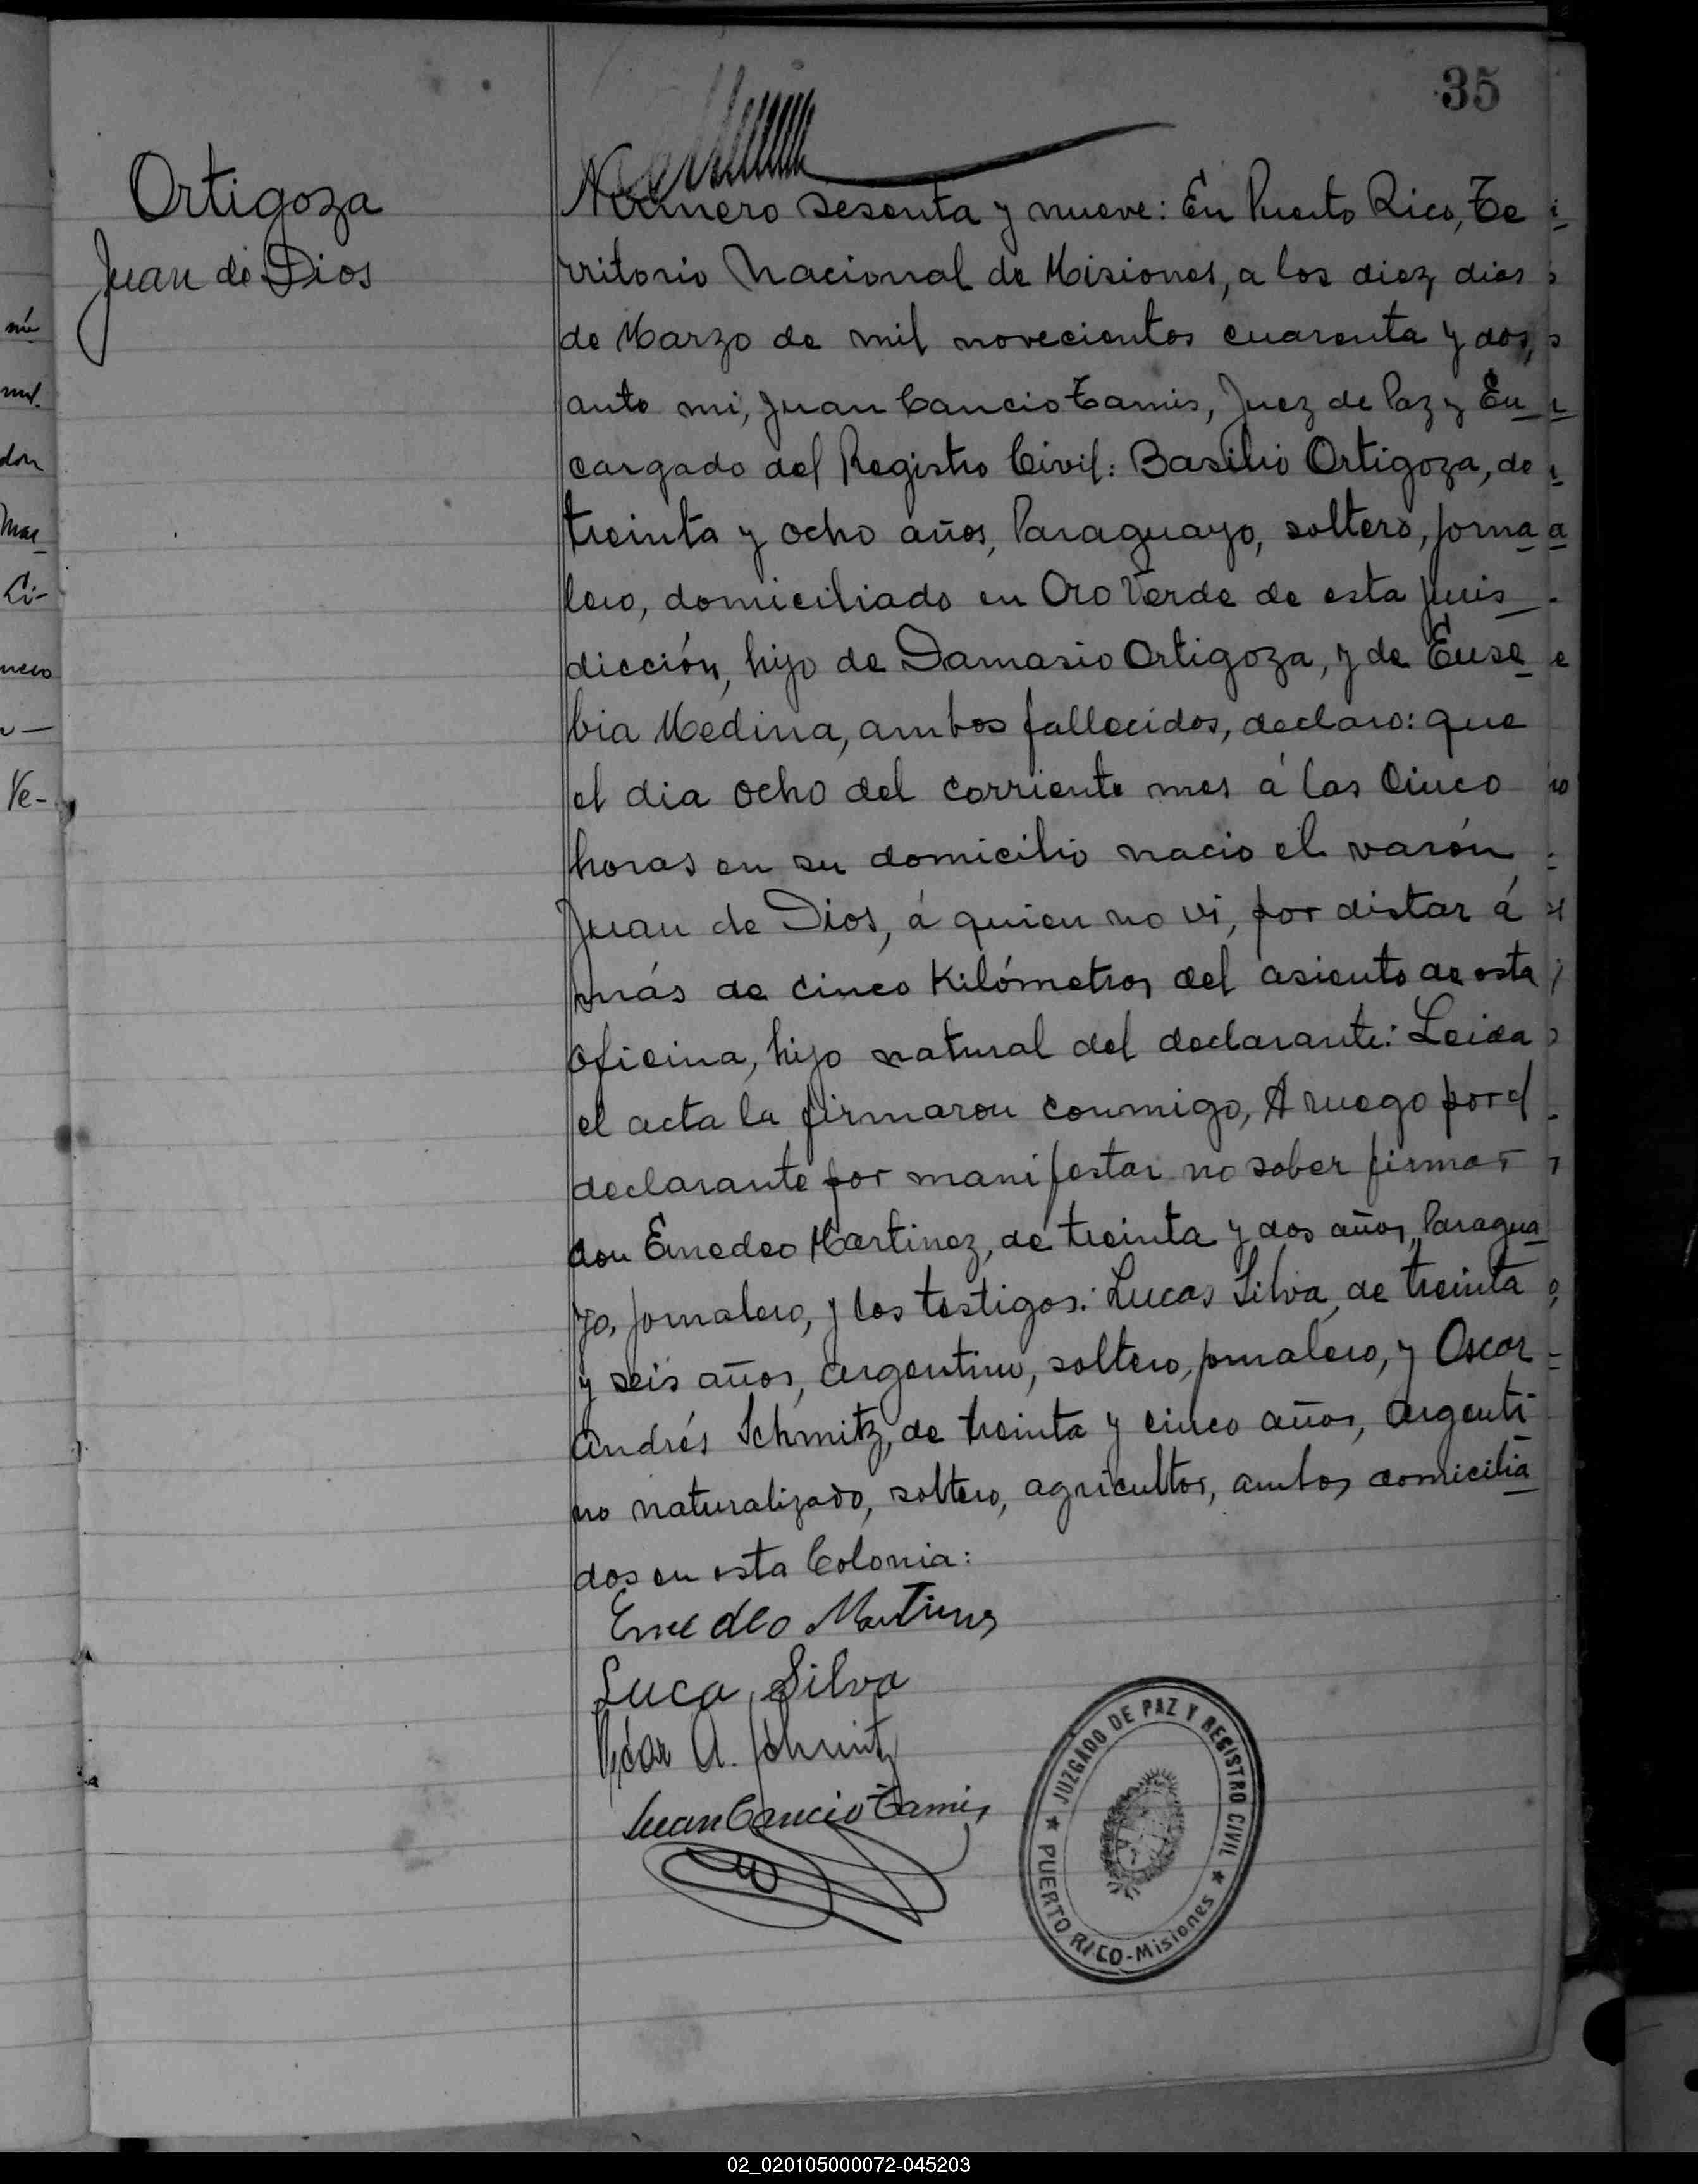 35
Ortigoza
Juan de Dios
Número sesenta y nueve: En Puerto Rico, Te
rritorio Nacional de Misiones, a los diez dias
de Marzo de mil novecientos cuarenta y dos,
ante mi, Juan Cancio Tamis, Juez de Paz y En
cargado del Registro Civil: Basilio Ortigoza, de
treinta y ocho años, Paraguayo, soltero, jorna
lero, domiciliado en Oro Verde de esta juris
dicción, hijo de Damasio Ortigoza, y de Euse
bia Medina, ambos fallecidos, declaro: que
el dia ocho del corriente mes á las cinco
horas en su domicilio nacio el varón
Juan de Dios, á quien no vi, por distar á
más de cinco Kilómetros del asiento de esta
oficina, hijo natural del declarante: Leida
el acta la firmaron conmigo, A ruego por el
declarante por manifestar no saber firmar
don Emedeo Martinez, de treinta y dos años, Paragua
yo, jornalero, y los testigos: Lucas Silva, de treinta
y seis años, argentino, soltero, jornalero, y Oscar
Andrés Schmitz, de treinta y cinco años, argenti
no naturalizado, soltero, agricultor, ambos domicilia
dos en esta Colonia:
Emedeo Martinez
Luca Silva
Oscar A. Schmitz
Juan Cancio Tamis
JUZGADO DE PAZ Y REGISTRO CIVIL
PUERTO RICO-Misiones
mil.
don
Mar
Ci-
nero
Ve-
02_020105000072-045203